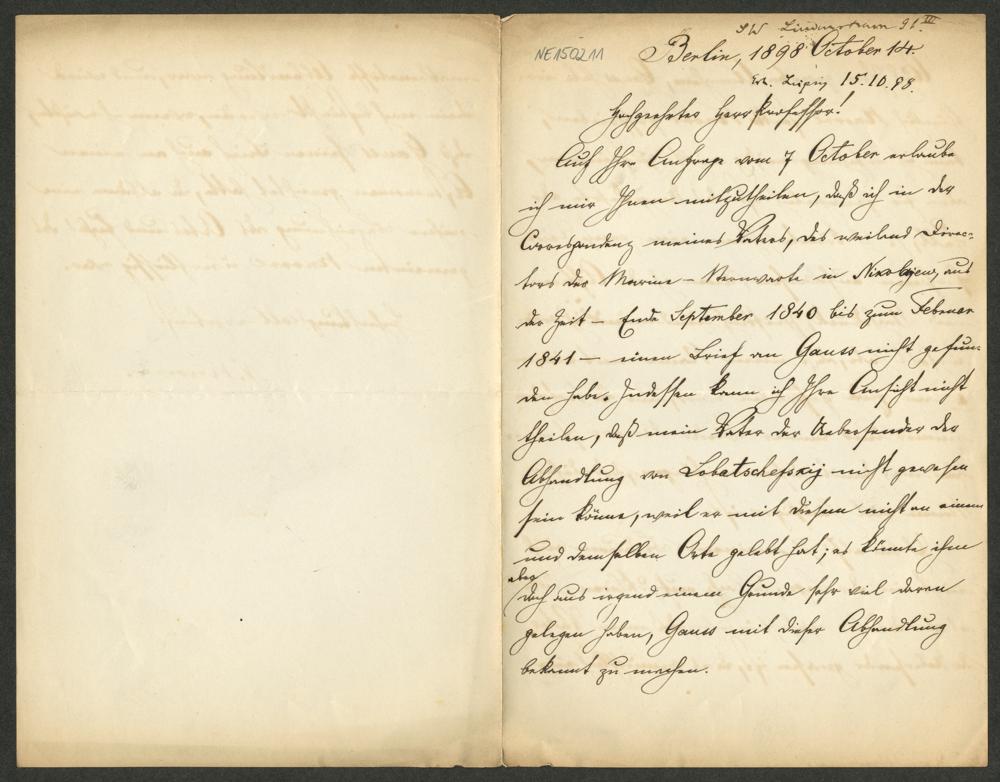 SW Lindenstrasse 91 III
NE150211
Berlin, 1898 October 14.
Erh. Leipzig 15.10.98.
Hochgeehrter Herr Professor!
Auf Ihre Anfrage vom 7 October erlaube
ich mir Ihnen mitzutheilen, daß ich in der
Correspondenz meines Vaters, des weiland Direc-
tors der Marine-Sternwarte in Nikolajew, aus
der Zeit – Ende September 1840 bis zum Februar
1841 – einen Brief an Gauss nicht gefun-
den habe. Indessen kann ich Ihre Ansicht nicht
theilen, daß mein Vater der Uebersender der
Abhandlung von Lobatschefskij nicht gewesen
sein könne, weil er mit diesem nicht an einem
und demselben Orte gelebt hat; es könnte ihm
aber
doch aus irgend einem Grunde sehr viel daran
gelegen haben, Gauss mit dieser Abhandlung
bekannt zu machen.